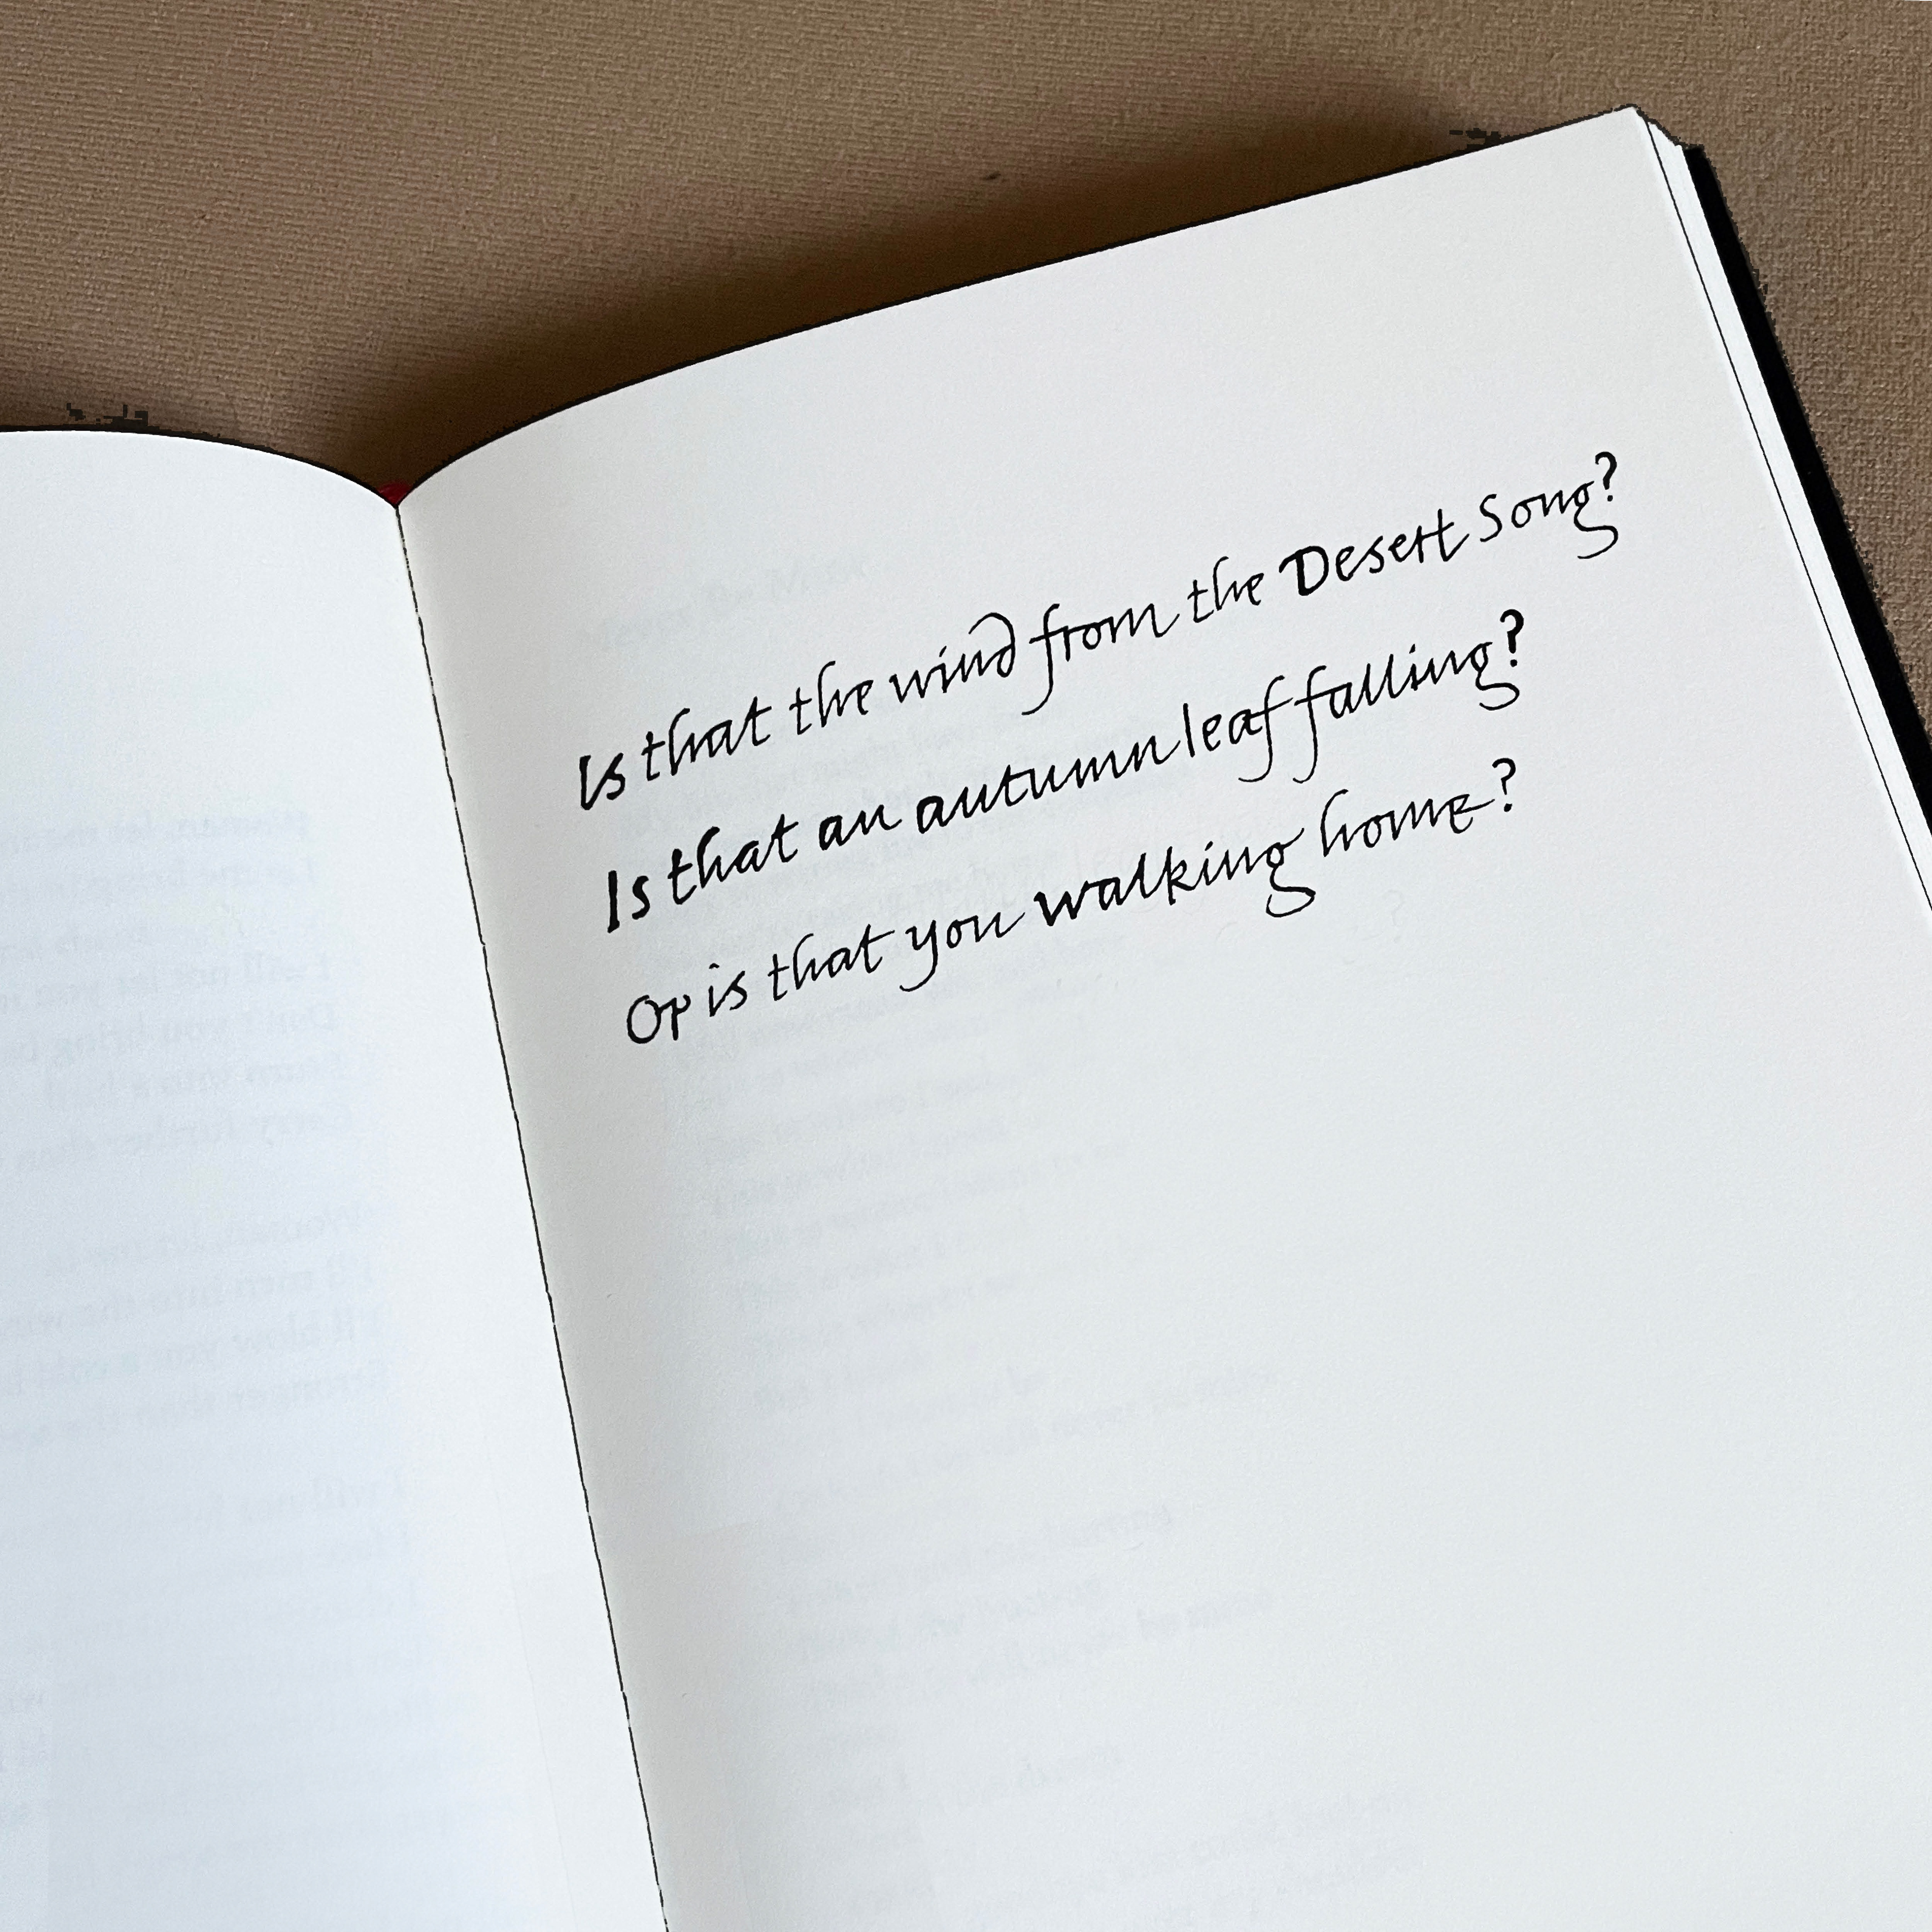 Is that the wind from the Desert Song?
Is that an autumn leaf falling?
Or is that you walking home?